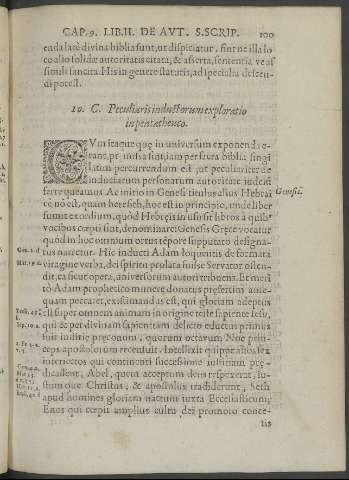 CAP. 9. LIB. II. DE AVT. S. SCRIP. 100
enda latè divina biblia sunt, ut dispiciatur, sint ne illa lo
co alio solidæ autoritatis citata, & asserta, sententia ve as
simili sancita. His in genere statutis, ad specialia descen
di potest.
10. C. Peculiaris inductorum exploratio
in pentatheuco.
CVm itaque quę in universum exponenda e-
rant, præmissa sint, jam per sacra biblia singi
latim percurrendum est, ut peculiariter de
inductarum personarum autoritate judici
ferre queamus. Ac initio in Genesi titulus ejus Hebrai
cè nō est, quam bereseh, hoc est in principio, unde liber
sumit exordium, quòd Hebręis in usu sit libros à quib
vocibus cœpti sint, denominare: Genesis Gręce vocatur
quòd in hoc omnium ortus tēpore supputato designa-
tus narretur. Hic inducti Adam loquentis de formata
viragine verba, dei spiritu prolata fuisse Servator osten-
dit, ea suæ opera, universorum autori tribuens. Et meri
tò Adam prophetico munere donatus præsertim ante-
quam peccaret, existimandus est, qui gloriam adeptus
est super omnem animam in origine teste sapiente Iesu,
qui & per divinam sapientiam delicto eductus primus
fuit justitię pręconum, quorum octavum Noe prin-
ceps apostolorum recensuit. Intellexit quippe alios sex
interjectos qui continuā successione justitiam præ-
dicassent, Abel, quem acceptum deus respexerat, ju-
stum que Christus, & apostolus tradiderunt, Seth
apud homines gloriam nactum juxta Ecclesiasticum,
Enos qui cœpit amplius cultū dei promoto conce-
Genesis.